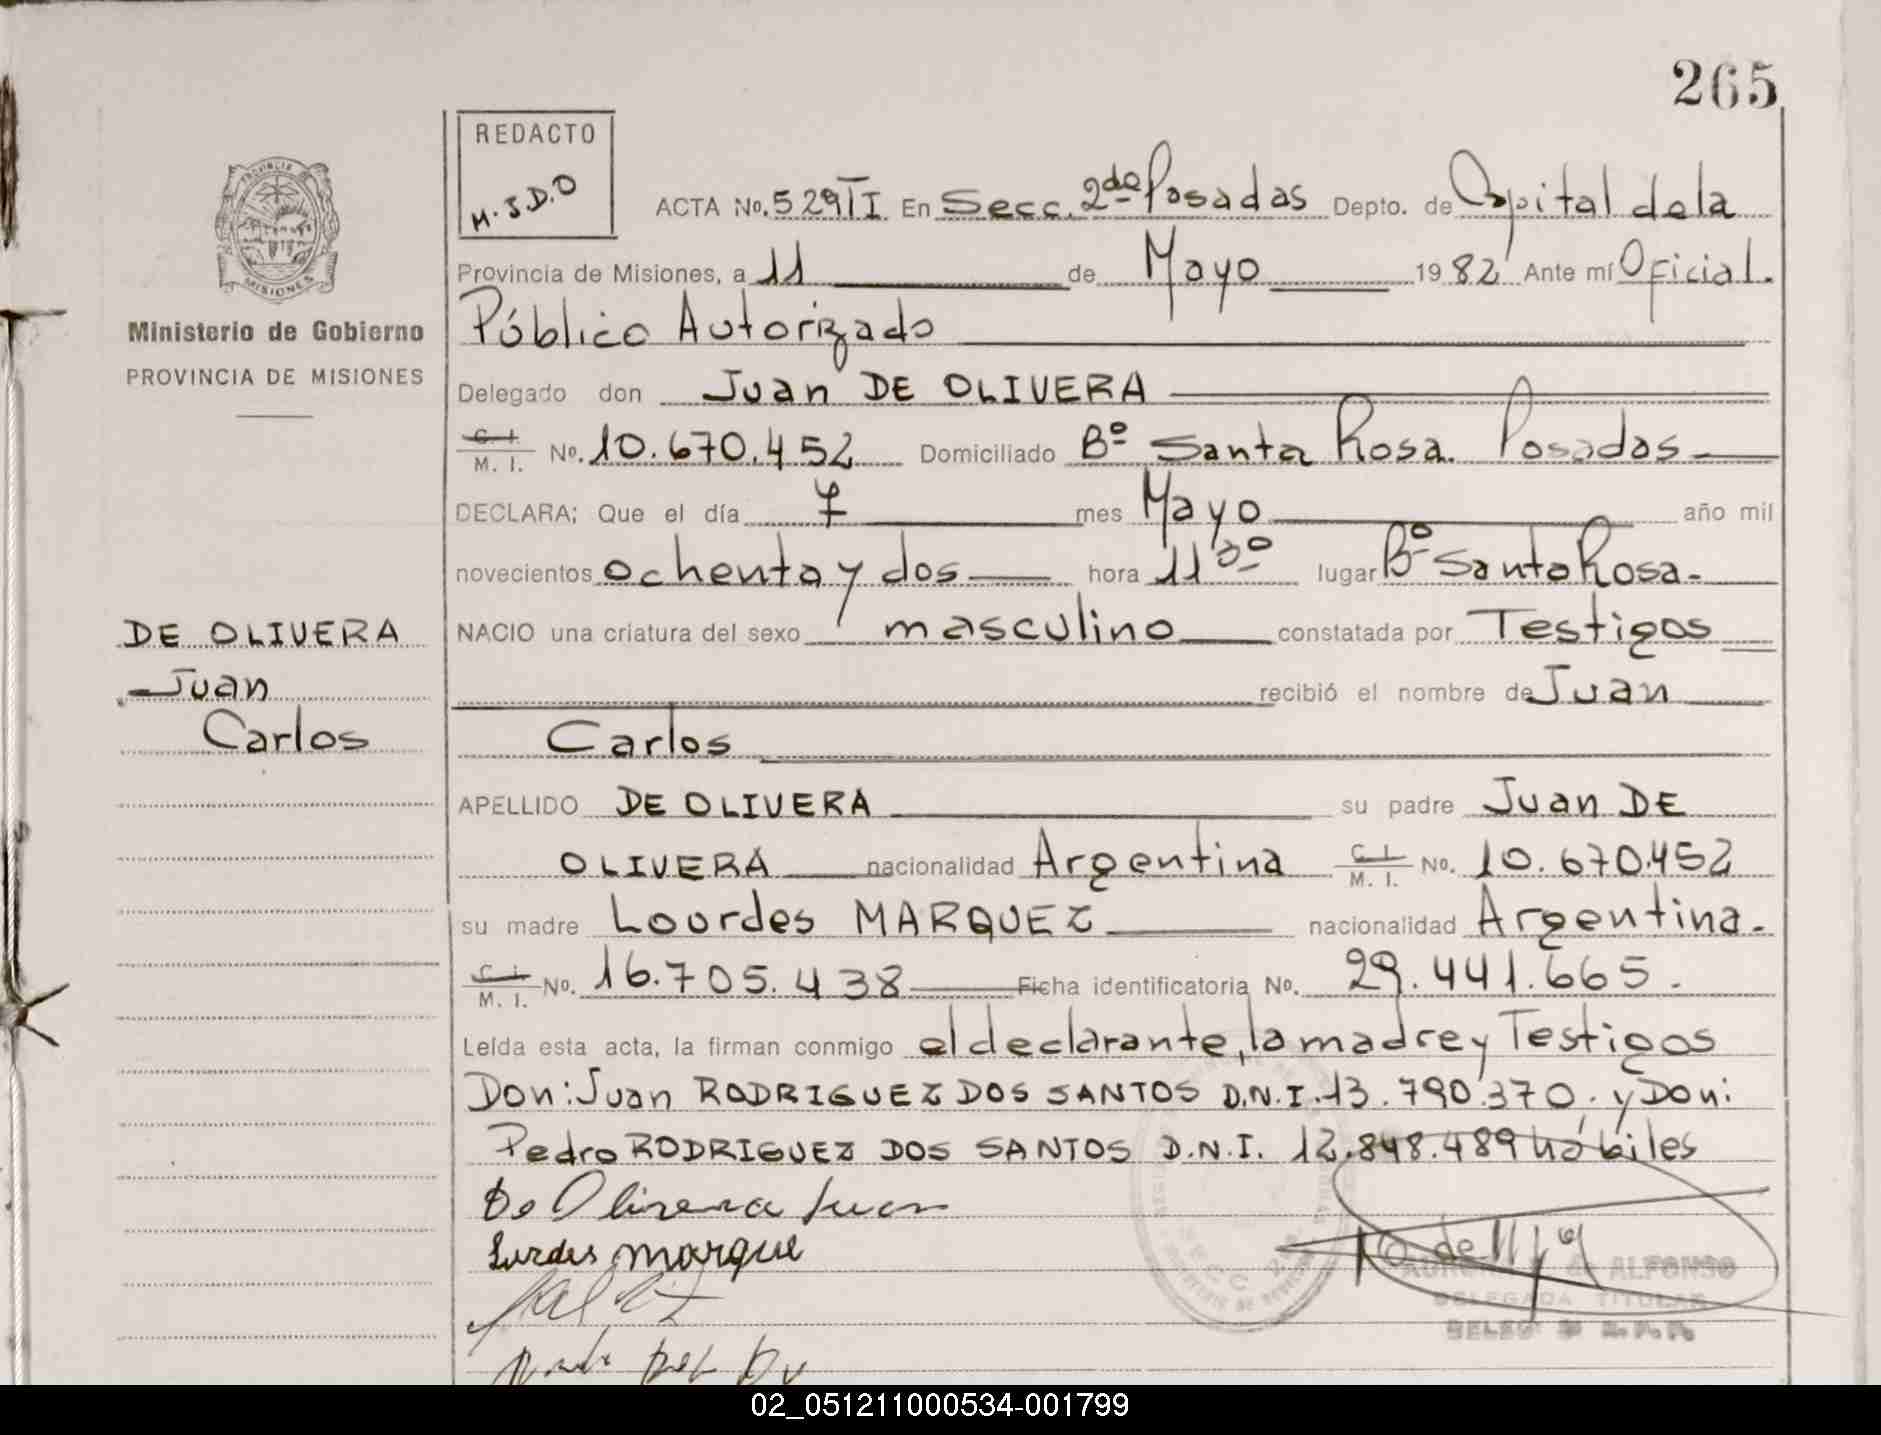 265
REDACTO
M.J.D.O
PROVINCIA
MISIONES
Ministerio de Gobierno
PROVINCIA DE MISIONES
DE OLIVERA
Juan
Carlos
ACTA No. 529 T I En Secc. 2da Posadas Depto. de Capital de la
Provincia de Misiones, a 11 de Mayo 1982 Ante mí Oficial.
Público Autorizado
Delegado don Juan DE OLIVERA
C. I. M. I. No. 10.670.452 Domiciliado Bº Santa Rosa. Posadas
DECLARA; Que el día 7 mes Mayo año mil
novecientos ochenta y dos hora 11 30 lugar Bº Santa Rosa.
NACIO una criatura del sexo masculino constatada por Testigos
recibió el nombre de Juan
Carlos
APELLIDO DE OLIVERA su padre Juan DE
OLIVERA nacionalidad Argentina C. I. M. I. No. 10.670.452
su madre Lourdes MARQUEZ nacionalidad Argentina.
C. I. M. I. No. 16.705.438 Ficha identificatoria No. 29.441.665.
Leída esta acta, la firman conmigo el declarante, la madre y Testigos
Don: Juan RODRIGUEZ DOS SANTOS D.N.I. 13.790.370. y Don:
Pedro RODRIGUEZ DOS SANTOS D.N.I. 12.848.489 hábiles
De Olivera Juan
Lurdes marque
de ALFONSO
DELEGADA TITULAR
02_051211000534-001799